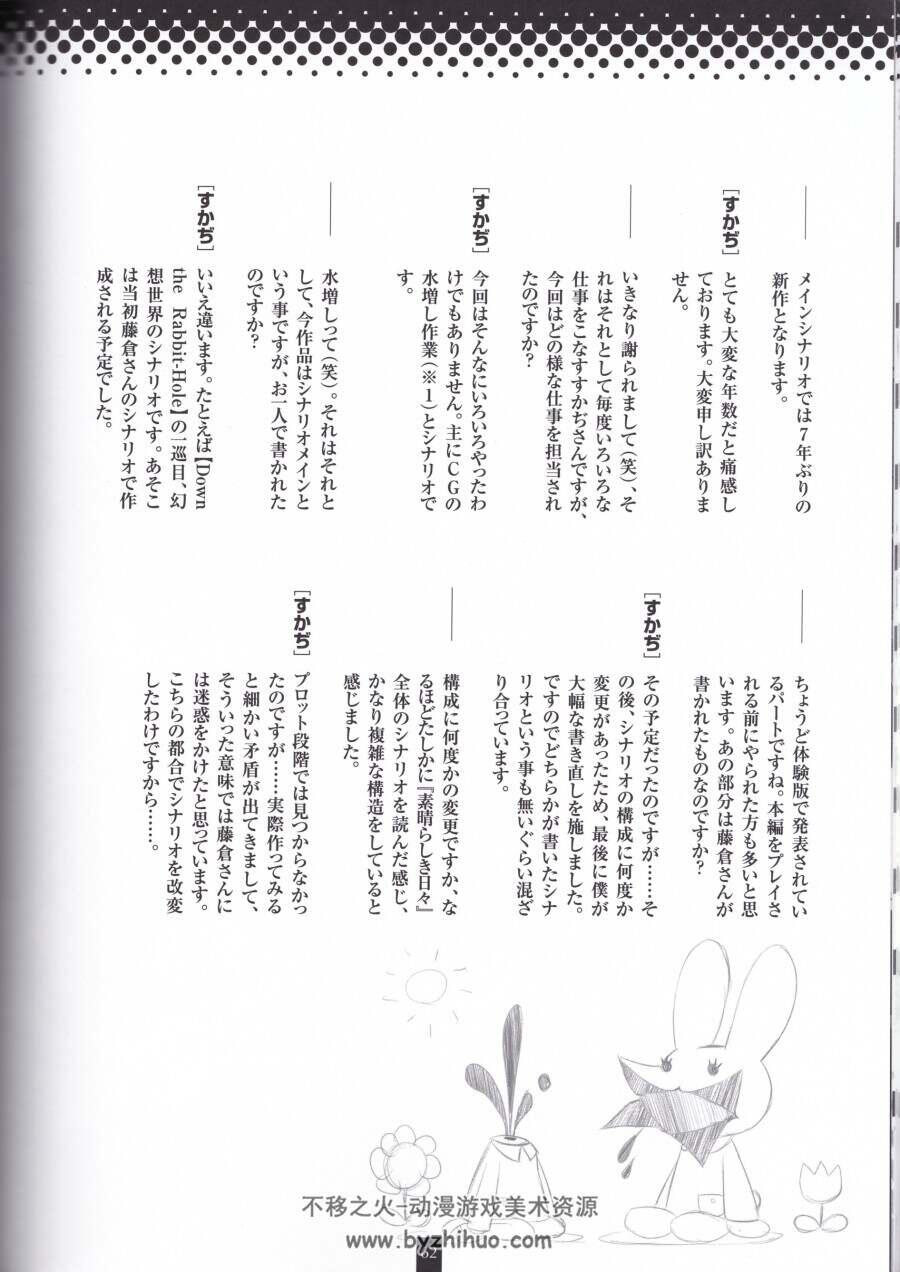 ――メインシナリオでは7年ぶりの
新作となります。
[すかぢ]とても大変な年数だと痛感し
ております。大変申し訳ありま
せん。
――いきなり謝られまして(笑)、そ
れはそれとして毎度いろいろな
仕事をこなすすかぢさんですが、
今回はどの様な仕事を担当され
たのですか?
[すかぢ]今回はそんなにいろいろやったわ
けでもありません。主にCGの
水増し作業(※1)とシナリオで
す。
――水増しって(笑)。それはそれと
して、今作品はシナリオメインと
いう事ですが、お一人で書かれた
のですか?
[すかぢ]いいえ違います。たとえば【Down
the Rabbit-Hole】の一巡目、幻
想世界のシナリオです。あそこ
は当初藤倉さんのシナリオで作
成される予定でした。
――ちょうど体験版で発表されてい
るパートですね。本編をプレイさ
れる前にやられた方も多いと思
います。あの部分は藤倉さんが
書かれたものなのですか?
[すかぢ]その予定だったのですが……そ
の後、シナリオの構成に何度か
変更があったため、最後に僕が
大幅な書き直しを施しました。
ですのでどちらかが書いたシナ
リオという事も無いぐらい混ざ
り合っています。
――構成に何度かの変更ですか、な
るほどたしかに『素晴らしき日々』
全体のシナリオを読んだ感じ、
かなり複雑な構造をしていると
感じました。
[すかぢ]プロット段階では見つからなかっ
たのですが……実際作ってみる
と細かい矛盾が出てきまして、
そういった意味では藤倉さんに
は迷惑をかけたと思っています。
こちらの都合でシナリオを改変
したわけですから……。
不移之火-动漫游戏美术资源
www.byzhihuo.com